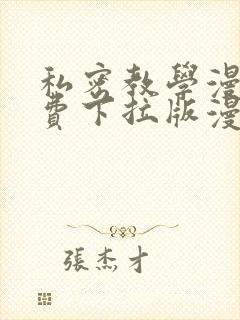 私密教學漫
費下拉版漫
張杰才